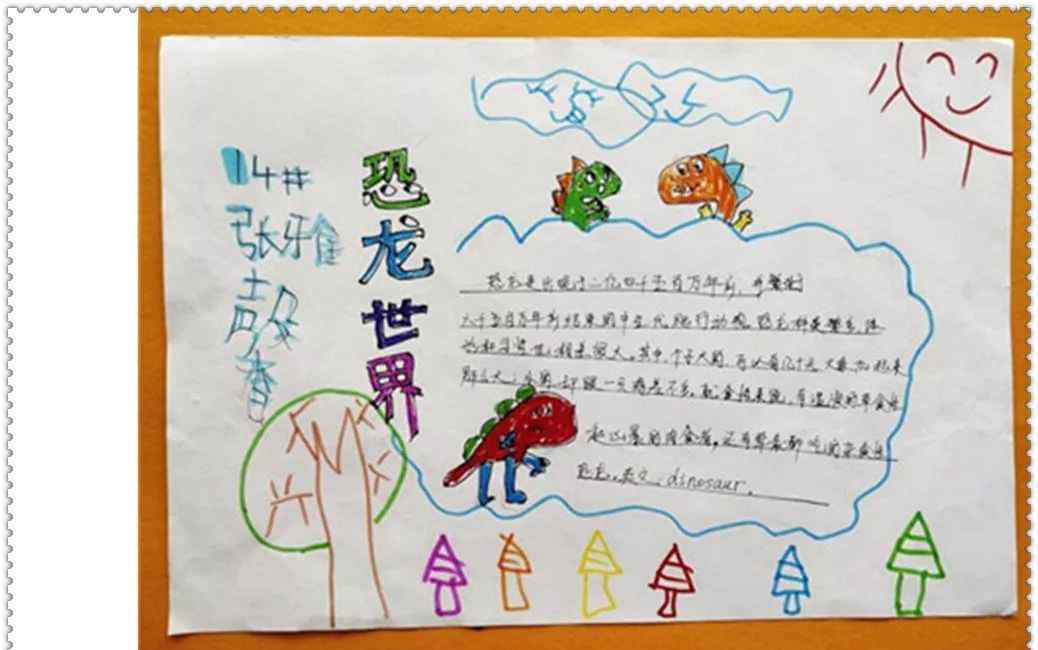 14#
张雅馨
恐龙世界
恐龙是出现于二亿四千五百万年前,并繁衍
六千五百万年前结束的中生代爬行动物,恐龙种类繁多,体
大,其中,个子大的,可以有几十头大象加起来
那么大;小的,却跟一只鸡差不多,就食性来说,有温驯的草食者
和凶暴的肉食者,还有荤素都吃的杂食性
恐龙。英文:dinosaur.